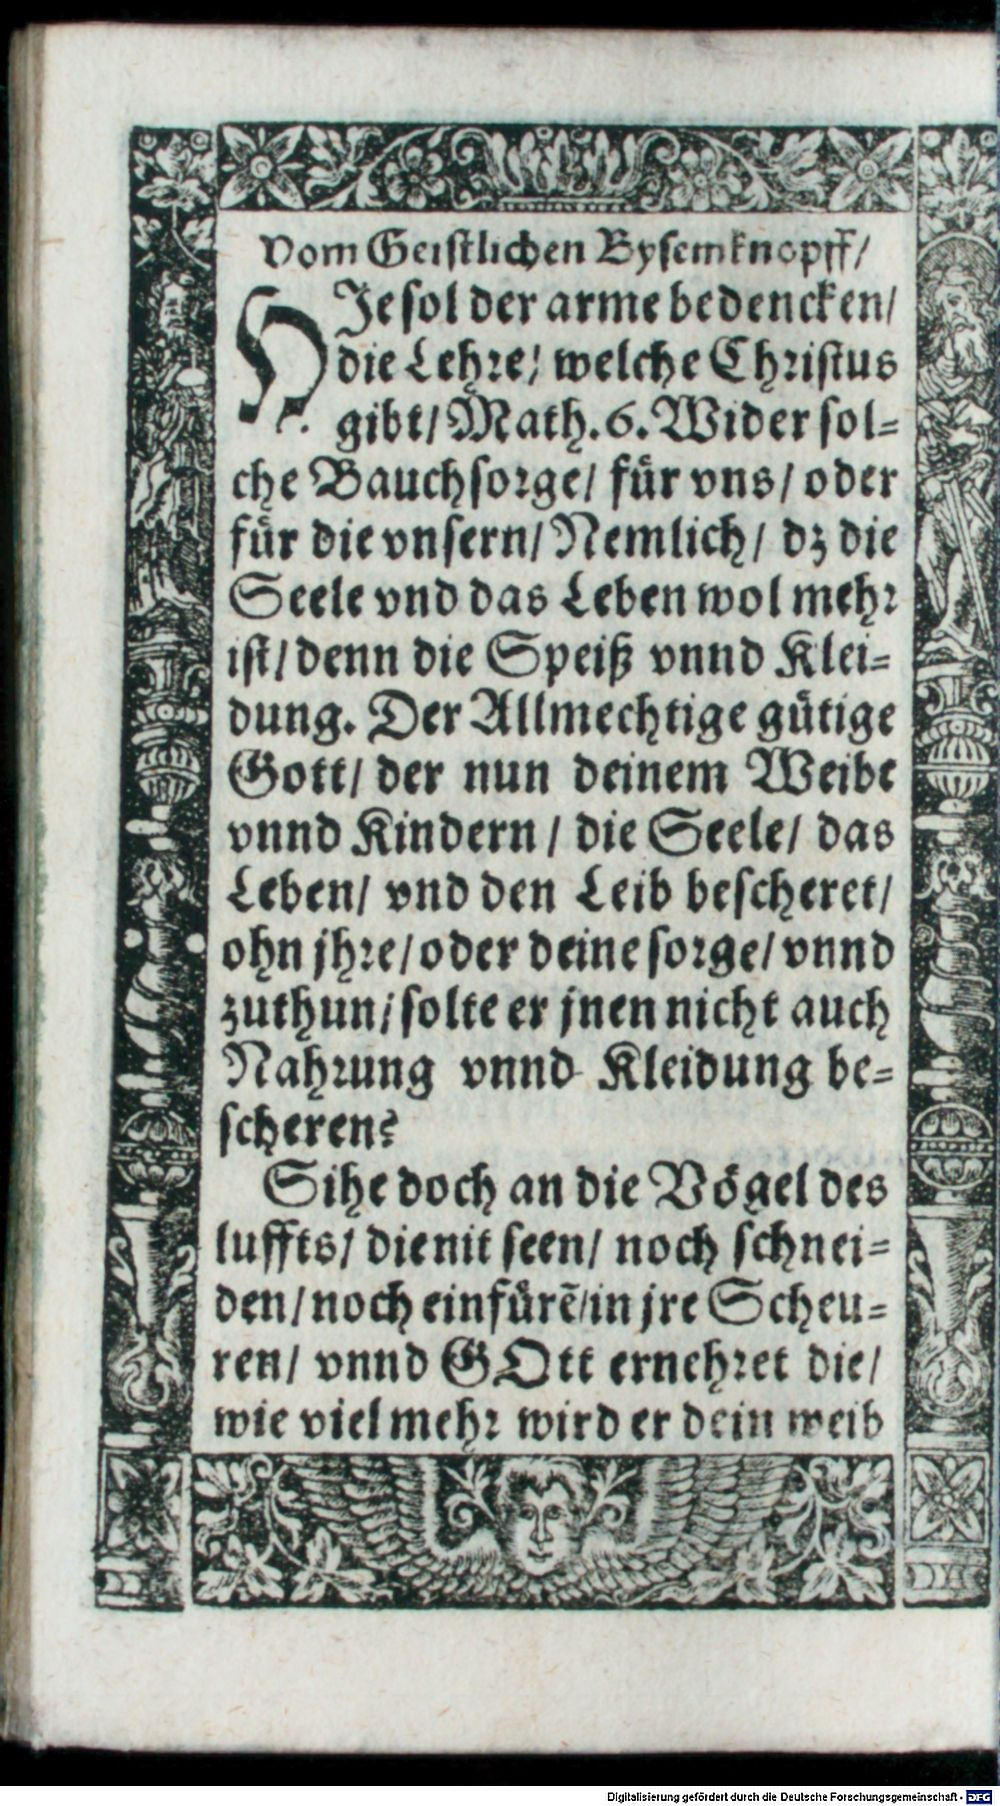 Vom Geistlichen Bysemknopff/
HJe sol der arme bedencken/
die Lehre/ welche Christus
gibt/ Math. 6. Wider sol-
che Bauchsorge/ für vns/ oder
für die vnsern/ Nemlich/ dz die
Seele vnd das Leben wol mehr
ist/ denn die Speiß vnnd Klei-
dung. Der Allmechtige gütige
Gott/ der nun deinem Weibe
vnnd Kindern/ die Seele/ das
Leben/ vnd den Leib bescheret/
ohn jhre/ oder deine sorge/ vnnd
zuthun/ solte er jnen nicht auch
Nahrung vnnd Kleidung be-
scheren?
Sihe doch an die Vögel des
luffts/ die nit seen/ noch schnei-
den/ noch einfürẽ/ in jre Scheu-
ren/ vnnd GOtt ernehret die/
wie viel mehr wird er dein weib
Digitalisierung gefördert durch die Deutsche Forschungsgemeinschaft - DFG